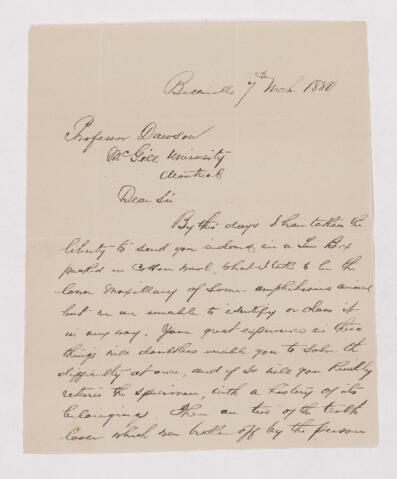 Belleville 7th Mch. 1880
Professor Dawson
McGill University
Montreal
Dear Sir
By this days I have taken the
liberty to send you in a Tin Box
packed in Cotton wool, what I take to be the
lower Maxillary of some amphibious animal
but we are unable to identify or class it
in any way. Your great experience in these
things will doubtless enable you to solve the
difficulty at once, and if so will you kindly
return the specimen, with a history of its
belongings. There are two of the teeth
loose which were broken off by the person